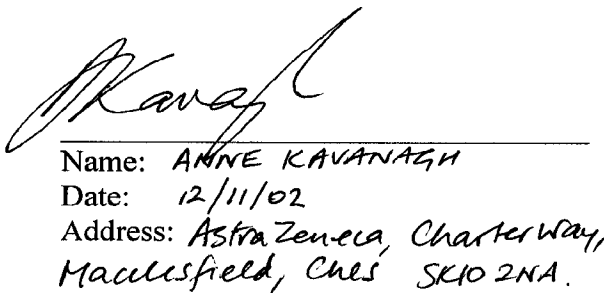 AKavagh
Name: ANNE KAVANAGH
Date: 12/11/02
Address: AstraZeneca, Charterway,
Macclesfield, Ches SK10 2NA.